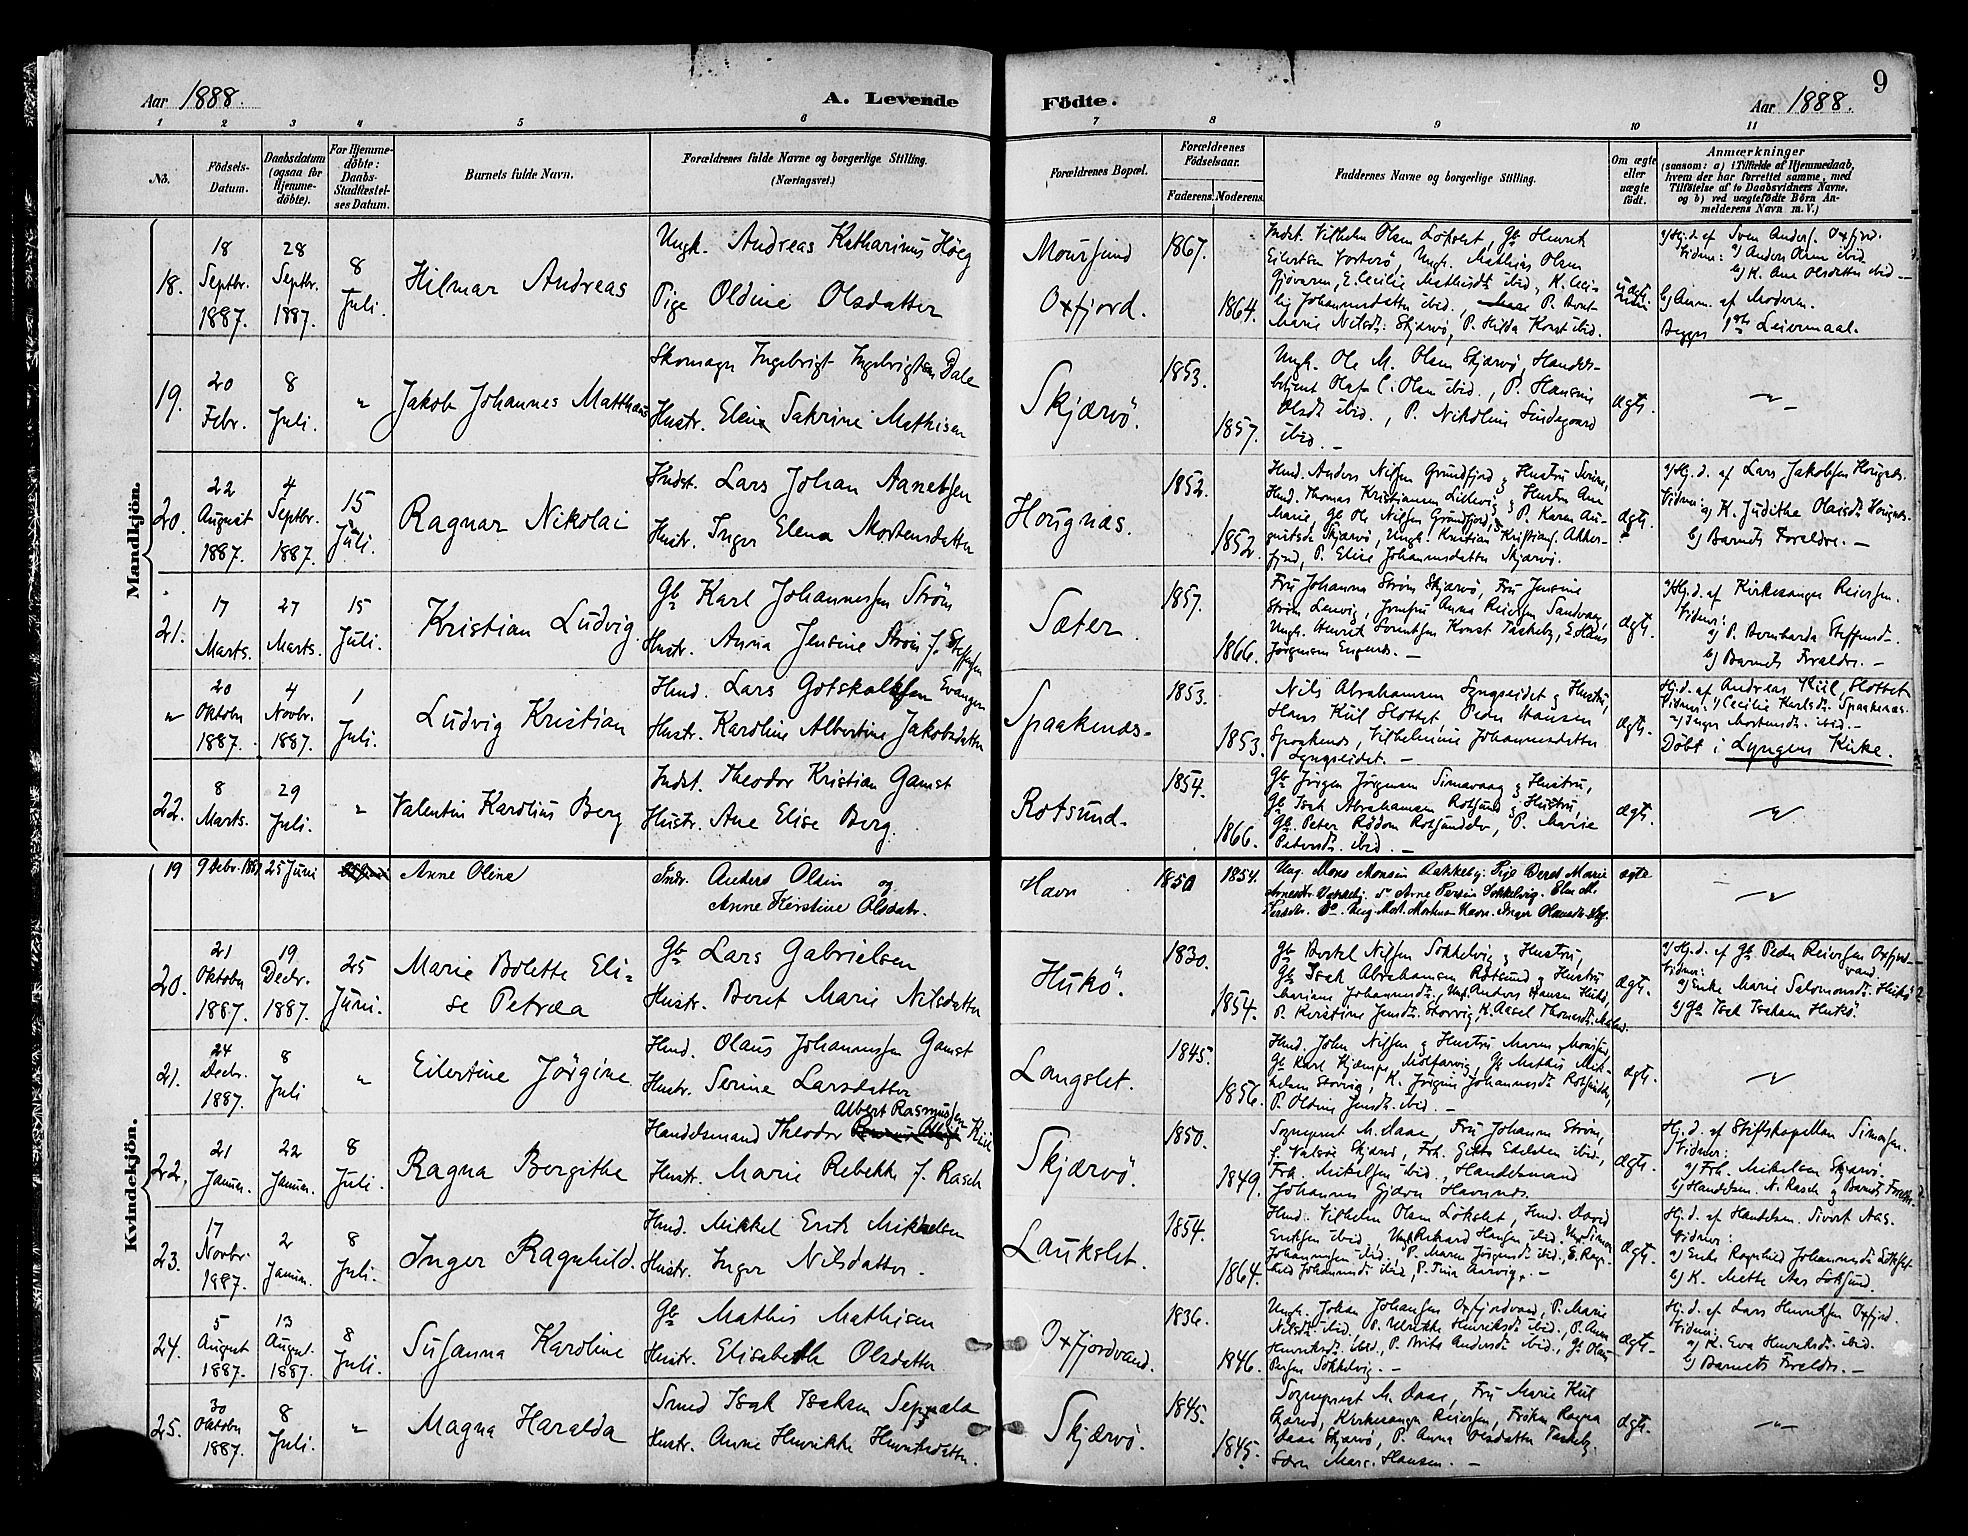 Aar 1888.
A. Levende
Födte.
Aar 1888.
9
1 2 3 4 5 6 7 8 9 10 11
No.
Födsels-Datum.
Daabsdatum (ogsaa for Hjemme-döbte).
For Hjemme-döbte: Daabs-Stadfæstel-ses Datum.
Barnets fulde Navn.
Forældrenes fulde Navne og borgerlige Stilling.
(Næringsvei.)
Forældrenes Bopæl.
Forældrenes Födselsaar.
Faderens. Moderens.
Faddernes Navne og borgerlige Stilling.
Om ægte eller uægte födt.
Anmærkninger
(saasom: a) i Tilfælde af Hjemmedaab, hvem der har forrettet samme, med Tilföielse af to Daabsvidners Navne, og b) ved uægtefödte Börn An-melderens Navn m. V.)
Mandkjön.
18.
18 Septbr. 1887.
28 Septbr. 1887.
8 Juli.
Hilmar Andreas
Ungk. Andreas Katharinus Höeg
Pige Oldine Olsdatter
Maursund
Oxfjord.
1867.
1864.
Indst. Vilhelm Olsen Lökslet, Gb Henrik
Eilertsen Vorterö, Ungk. Mathias Olsen
Marie Nilsdt: Skjærvö, P. Hilda Konst ibid.
a/ Hj.d. af Sven Anders. Oxfjord.
Vidner: a/ Anders Olsen ibid
b/ K. Ane Olsdatter ibid –
b/ Anm. af Moderen.
Begges 1ste Leiermaal.
19.
20 Febr.
8 Juli.
"
Jakob Johannes Matthæus
Skomager Ingebrigt Ingebrigtsen Dale
Hustr. Elen Sakrine Mathisen
Skjærvö.
1853.
1857.
Ungk. Ole M. Olsen Skjærvö, Handels-
betjent Olaf C. Olsen ibid., P. Hansine
Olsdt ibid., P. Nikoline Lindegaard
ibid. –
ægte.
20.
22 August 1887.
4 Septbr. 1887.
15 Juli.
Ragnar Nikolai
Indst. Lars Johan Aanetsen
Hustr. Inger Elena Mortensdatter
Hougnæs.
1852.
1852.
Hmd. Anders Nilsen Grundfjord & Hustru
Hmd. Thomas Kristiansen & Hustru Ane
Marie, Gb Ole Nilsen Grundfjord, P. Karen Au-
gusta Skjærvö, Ungk. Kristian Kristians. Akker-
fjord, P. Elise Johannesdatter Skjærvö.
ægte.
a/ Hj.d. af Lars Jakobsen Hougnæs.
Vidner: a/ K. Judithe Olaisdt. Hougnæs.
b/ Barnets Forældre. –
21.
17 Marts.
27 Marts.
15 Juli.
Kristian Ludvig
Gb Karl Johannessen Ström
Hustr. Anna Jensine Ström f. Steffensen
Sæter.
1857.
1866.
Fru Johanna Ström Skjærvö, Fru Jensine
Ström, Jomfru Anna Reiersen Sandvaag,
Ungk. Henrik Lorentsen Konst Taskeby, E. Hans
Jörgensen –
ægte.
a/ Hj.d. af Kirkesanger Reiersen.
Vidner:
a/ P. Bernharda Steffens. –
b/ Barnets Forældre. –
"
20 Oktober 1887.
4 Novbr. 1887.
1 Juli.
Ludvig Kristian
Hmd. Lars Gotskalksen Evangen
Hustr. Karoline Albertine Jakobsdatter
Spaakenæs.
1853.
1853.
Nils Abrahamsen Lyngseidet & Hustru,
Hans Kiil Slottet, Peder Hansen
Spaakenæs, Vilhelmine Johannesdatter
Lyngseidet. –
ægte.
Hj.d. af Andreas Kiil, Slottet
Vidner: a/ Cecilie Karlsdt. Spaakenæs.
b/ Inger Mortensdt. ibid. –
Döbt i Lyngens Kirke.
22.
8 Marts.
29 Juli.
"
Valentin Karolius Berg
Indst. Theodor Kristian Gamst
Hustr. Ane Elise Berg.
Rotsund.
1854.
1866.
Gb Jörgen Jörgensen & Hustru,
Gb Isak Abrahamsen Rotsund & Hustru,
Gb. Peter Rödom, P. Marie
Petersdt. ibid. –
ægte.
Kvindekjön.
19
9 Debr. 1887
25 Juni
Anne Oline
Indr. Anders Olsen og
Anne Kirstine Olsdatr.
Havn
1850
1854.
ægte
20.
21 Oktober 1887.
19 Decbr. 1887.
25 Juni.
Marie Bolette Eli-
se Petræa
Gb Lars Gabrielsen
Hustr. Beret Marie Nilsdatter
Hukö.
1830.
1854.
Gb Bertel Nilsen Sokkelvig & Hustru,
Gb Isak Abrahamsen Rotsund & Hustru
Mariane Johannesdt., Ungk. Anders Hansen Hukö,
P. Kirstine Jensdt. Storvig, K. Aasel Thomasdt.
ægte.
a/ Hj.d. af Gb Peder Reiersen Oxfjord-
vand.
Vidner:
a/ Enke Marie Salomonsdt. Hukö
b/ Gb Isak Isaksen Hukö.
21.
24 Decbr. 1887.
8 Juli
"
Eilertine Jörgine
Hmd. Olaus Johannessen Gamst
Hustr. Serine Larsdatter
Langslet.
1845.
1856.
Hmd. John Nilsen & Hustru Maren Monsdt,
Gb Karl Kjempe, Gb Mathis Mik-
kelsen Storvig, K. Jörgine Johannesdt. Rotsund,
P. Oldine Jensdt. ibid. –
ægte.
22.
21 Januar.
22 Januar.
8 Juli.
Ragna Bergithe
Albert Rasmussen
Handelsmand Theodor Kiil
Hustr. Marie Rebekka f. Rasch
Skjærvö.
1850.
1849.
Sogneprest M. Daae, Fru Johanna Ström,
Frk. Mikelsen ibid., Handelsmand
Johannes Gjæver Havnnæs.
ægte.
Hj.d. af Stiftskapellan Simonsen.
Vidner:
a/ Frk. Mikelsen Skjærvö.
b/ Handelsm. N. Rasch & Barnets Forældre
23.
17 Novbr. 1887.
2 Januar.
8 Juli.
Inger Ragnhild.
Hmd. Mikkel Erik Mikkelsen
Hustr. Inger Nilsdatter.
Laukslet.
1854.
1864.
Hmd. Vilhelm Olsen Lökslet, Hmd. David
Eriksen ibid, Ungk. Rikard Hansen ibid, Ungk. Simon
Johannesen ibid, P. Maren Jörgensdt. ibid, E. Ragn-
hild Johannesdt ibid, P. Trina Aarvig. –
ægte.
Hj.d. af Handelsm. Sivert Aas.
Vidner:
a/ Enke Ragnhild Johannesdt. Lökslet
b/ K. Mette Aas Löksund.
24.
5 August 1887.
13 August. 1887.
8 Juli.
Susanna Karoline
Gb Mathis Mathisen
Hustr. Elisabeth Olsdatter
Oxfjordvand.
1836.
1846.
Ungk. Johan Johansen Oxfjordvand, P. Marie
Nilsdt ibid, P. Ulrikke Henriksdt. ibid., P. Anne
Henriksdt. ibid., P. Brita Andersdt. ibid., Gb Olaus
Persen Sokkelvig. –
ægte.
Hj.d. af Lars Henriksen Oxfjord.
Vidner:
a/ K. Eva Henriksdt. ibid.
b/ Barnets Forældre. –
25.
30 Oktober 1887.
8 Juli.
"
Magna Haralda
Smed Isak Isaksen Seppælä
Hustr. Anne Henrikke Henriksdatter.
Skjærvö.
1845.
1845.
Sogneprest M. Daae, Fru Marie Kiil
Skjærvö, Kirkesanger Reiersen, Fröken Ragna
Daae Skjærvö, P. Anna Olsdatter Taskeby.
Sören Marc. Hansen. –
ægte.